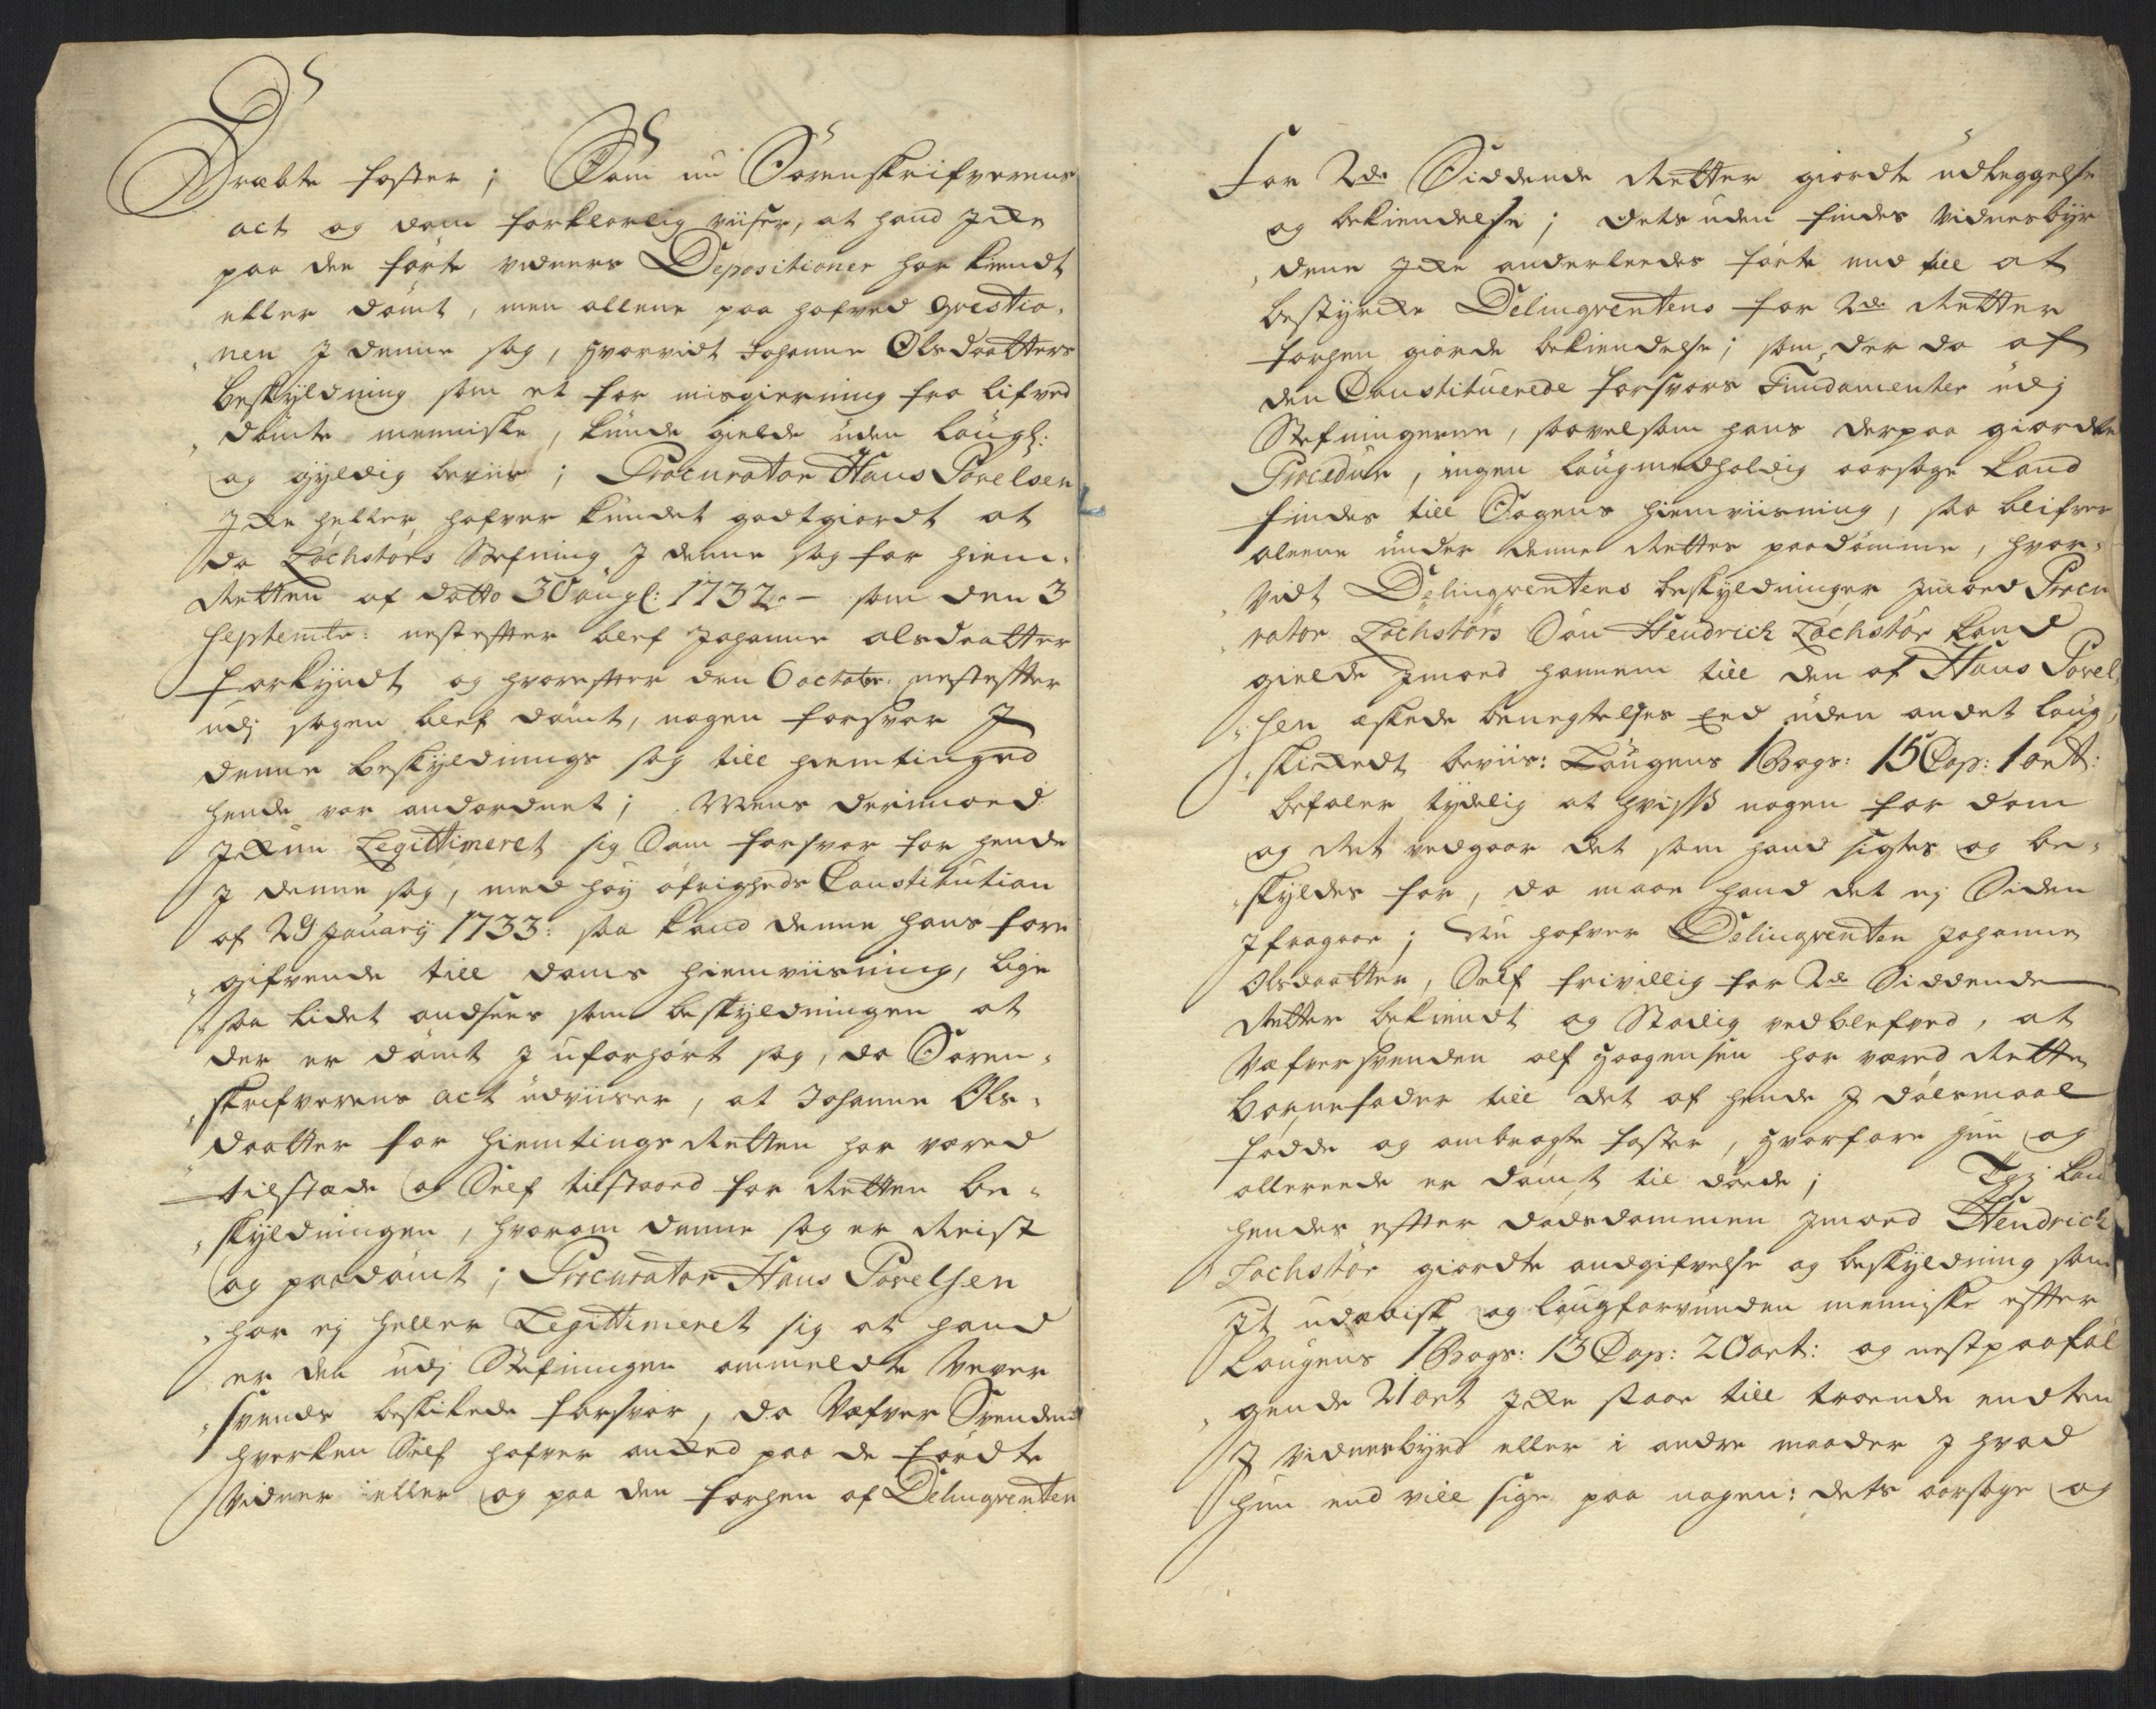 Dræbte foster; Som nu Sörenskrifverens
act og dom forklarlig viiser, at hand Icke
paa den förte vidners Depositioner har kiendt
eller dömt, men allene paa hofved qvestio-
nen I denne sag, hvorvidt Johanne Olsdaatters
beskyldning som et for misgierning fra lifved
dömte menniske, kunde gielde uden laugl:
og gyldig beviis; Procurator Hans Povelsen
Icke heller, hafver kundet godtgiordt at
da Lochstörs Stefning I denne sag for hiem-
Retten af datto 30 augl: 1732 – som den 3
Septembr: nestefter blef Johanne olsdaatter
forkyndt og hvorefter den 6 octobr: nestefter
udj sagen blef dömt, nogen forsvar I
denne beskyldnings sag till hiemtinged
hende var anordnet; Mens derimoed
Ickun Legittimeret sig Som forsvar for hende
I denne sag, med höy öfrigheds Constitution
af 29 January 1733: saa kand denne hans fore
gifvende till doms hiemviisning, lige
saa lidet ansees som beskyldningen at
der er dömt I uforhört sag, da Soren-
skrifverens act udviiser, at Johanne Ols-
daatter for hiemtings Retten har væred
tilstæde og Self tilstaaed for Retten be-
skyldningen, hvorom denne sag er Reist
og paadömt; Procurator Hans Povelsen
har ej heller Legittimeret sig at hand
er den udj Stefningen ommeldte Væver
svends beskikede forsvar, da Væfver Svenden
hverken Self hafver anked paa de fördte
Vidner eller og paa den forhen af Delinqventen
For 2de Siddende Retter giordte udleggelse
og bekiendelse; Dets uden findes Vidnesbyr
dene Icke anderleedes förte end till at
bestyrcke Delinqventens for 2de Retter
forhen giorde bekiendelse; som der da af
den Constituerede forsvars Fundamenter udj
Stefningerne, saavelsom hans derpaa giordte
Procedur, ingen laugmedholdig aarsage kand
findes till Sagens hiemviisning, saa blifver
aleene under denne Rettes paadömme, hvor-
vidt Delinqventens beskyldninger Imoed Procu
rator Lochstörs Sön Hendrich Lochstör kand
gielde Imoed hannem till den af Hans Povel
sen æskede benegtelses Eed uden andet laug
skicket beviis: Laugens 1 Bogs: 15 Cap: 1 art:
befaler tydelig at hviss nogen for dom
og Ret vedgaar det som hand sigtes og be-
skyldes for, da maae hand det ej Siden
Ifragaae; Nu hafver Delinqventen Johanne
Olsdaatter, Self frivillig for 2de Siddende
Retter bekiendt og Stadig vedblefved, at
Væfversvenden olf Haagensen har væred Rette
barnefader till det af hende I dölsmaal
födde og ombragte foster, hvorfore hun og
allereede er dömt til döede; Thj kan
hendes efter dödsdommen Imoed Hendrich
Lochstör giordte angifvelse og beskyldning som
It udædisk og laugforvunden menniske efter
Laugens 1 Bogs: 13 Cap: 20 art: og nestpaaföl
gende 21 art Icke staae till troende endten
I vidnesbyrd eller i andre maader I hvad
hun end vill sige paa nogen: dets aarsage og